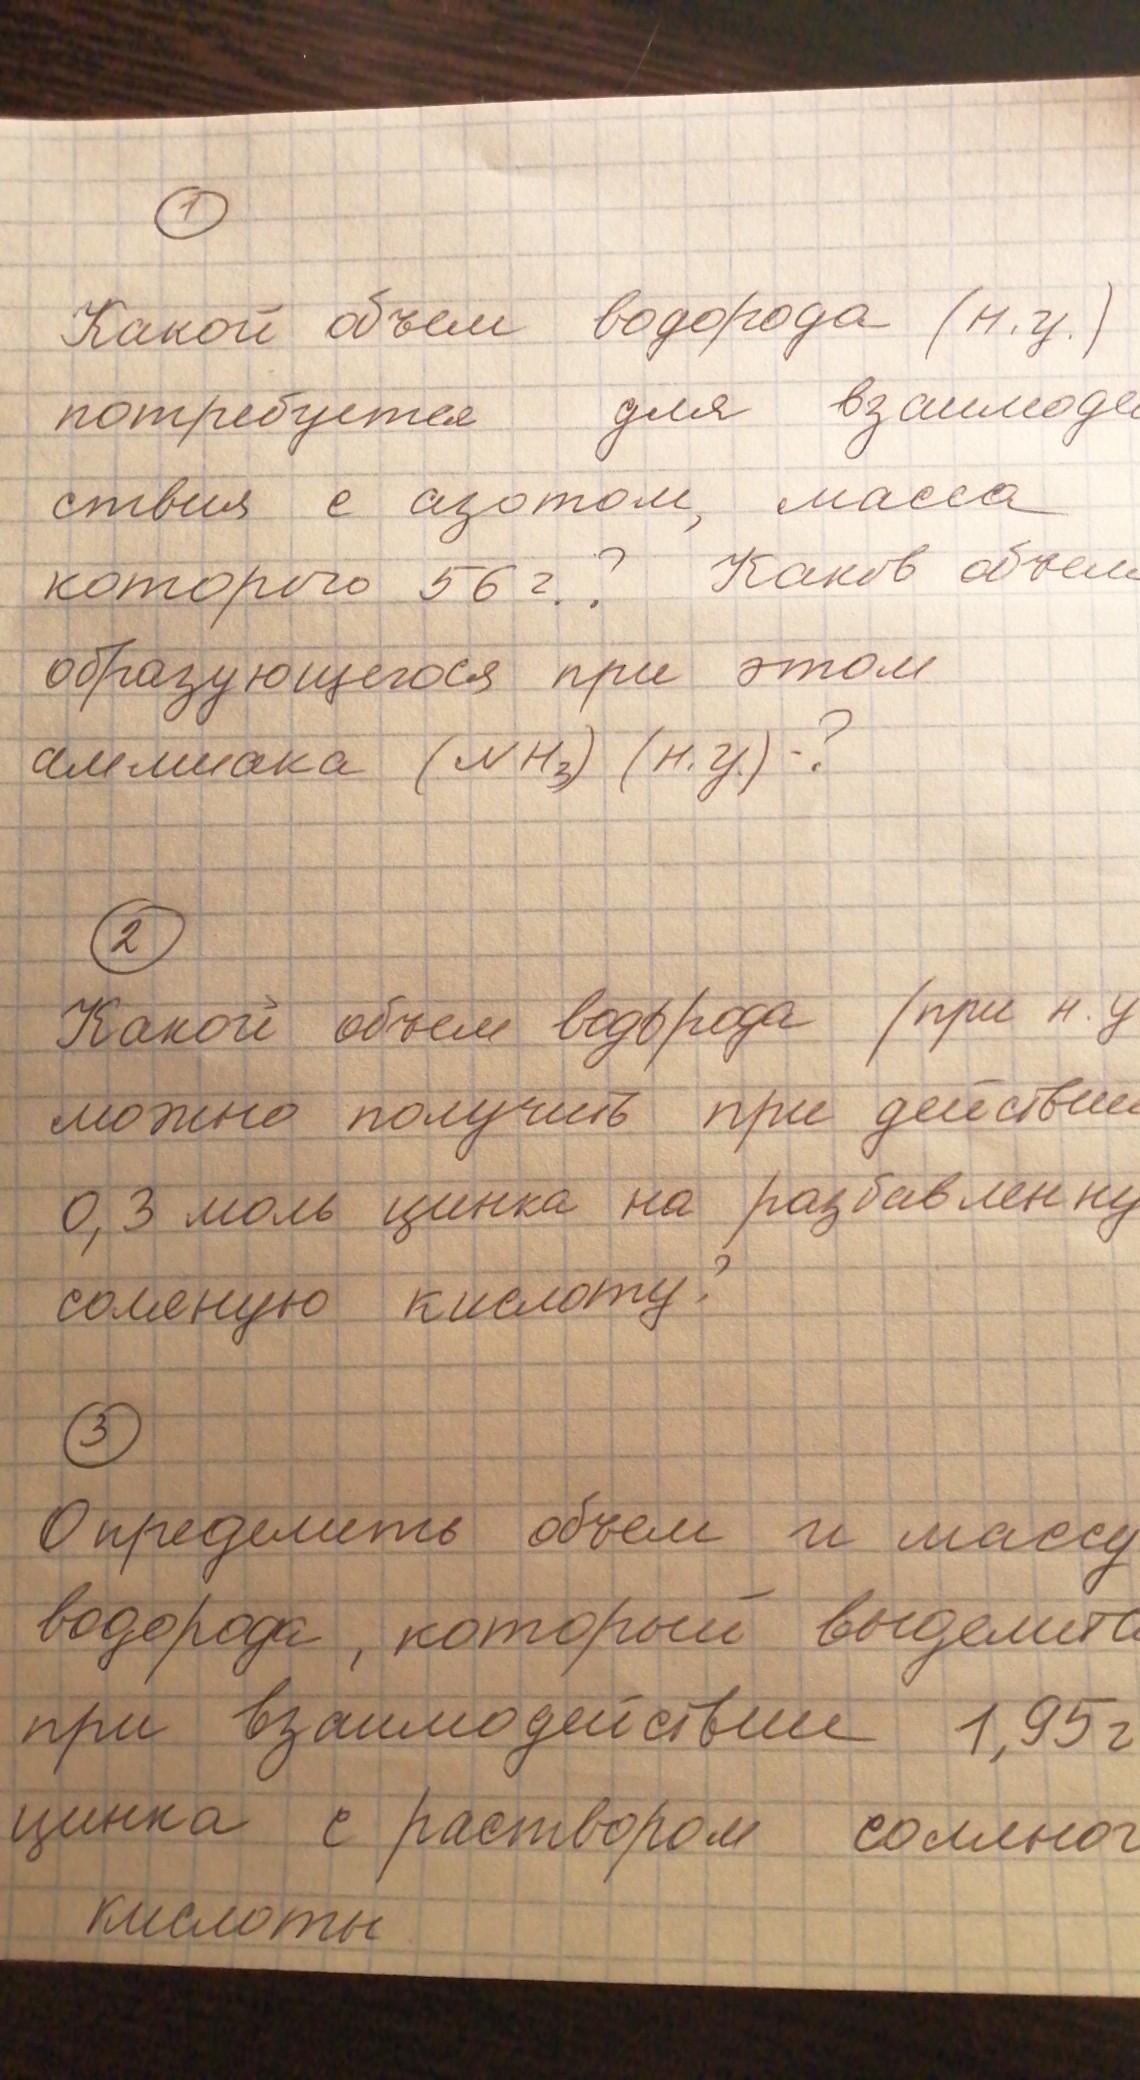 1
Какой объем водорода (н.у.)
потребуется для взаимодей
ствия с азотом, масса
которого 56 г.? Каков объем
образующегося при этом
аммиака (NH3) (н.у.) -?
2
Какой объем водорода (при н.у
можно получить при действии
0,3 моль цинка на разбавленну
соляную кислоту?
3
Определить объем и массу
водорода, который выделитс
при взаимодействии 1,95г
цинка с раствором соляног
кислоты